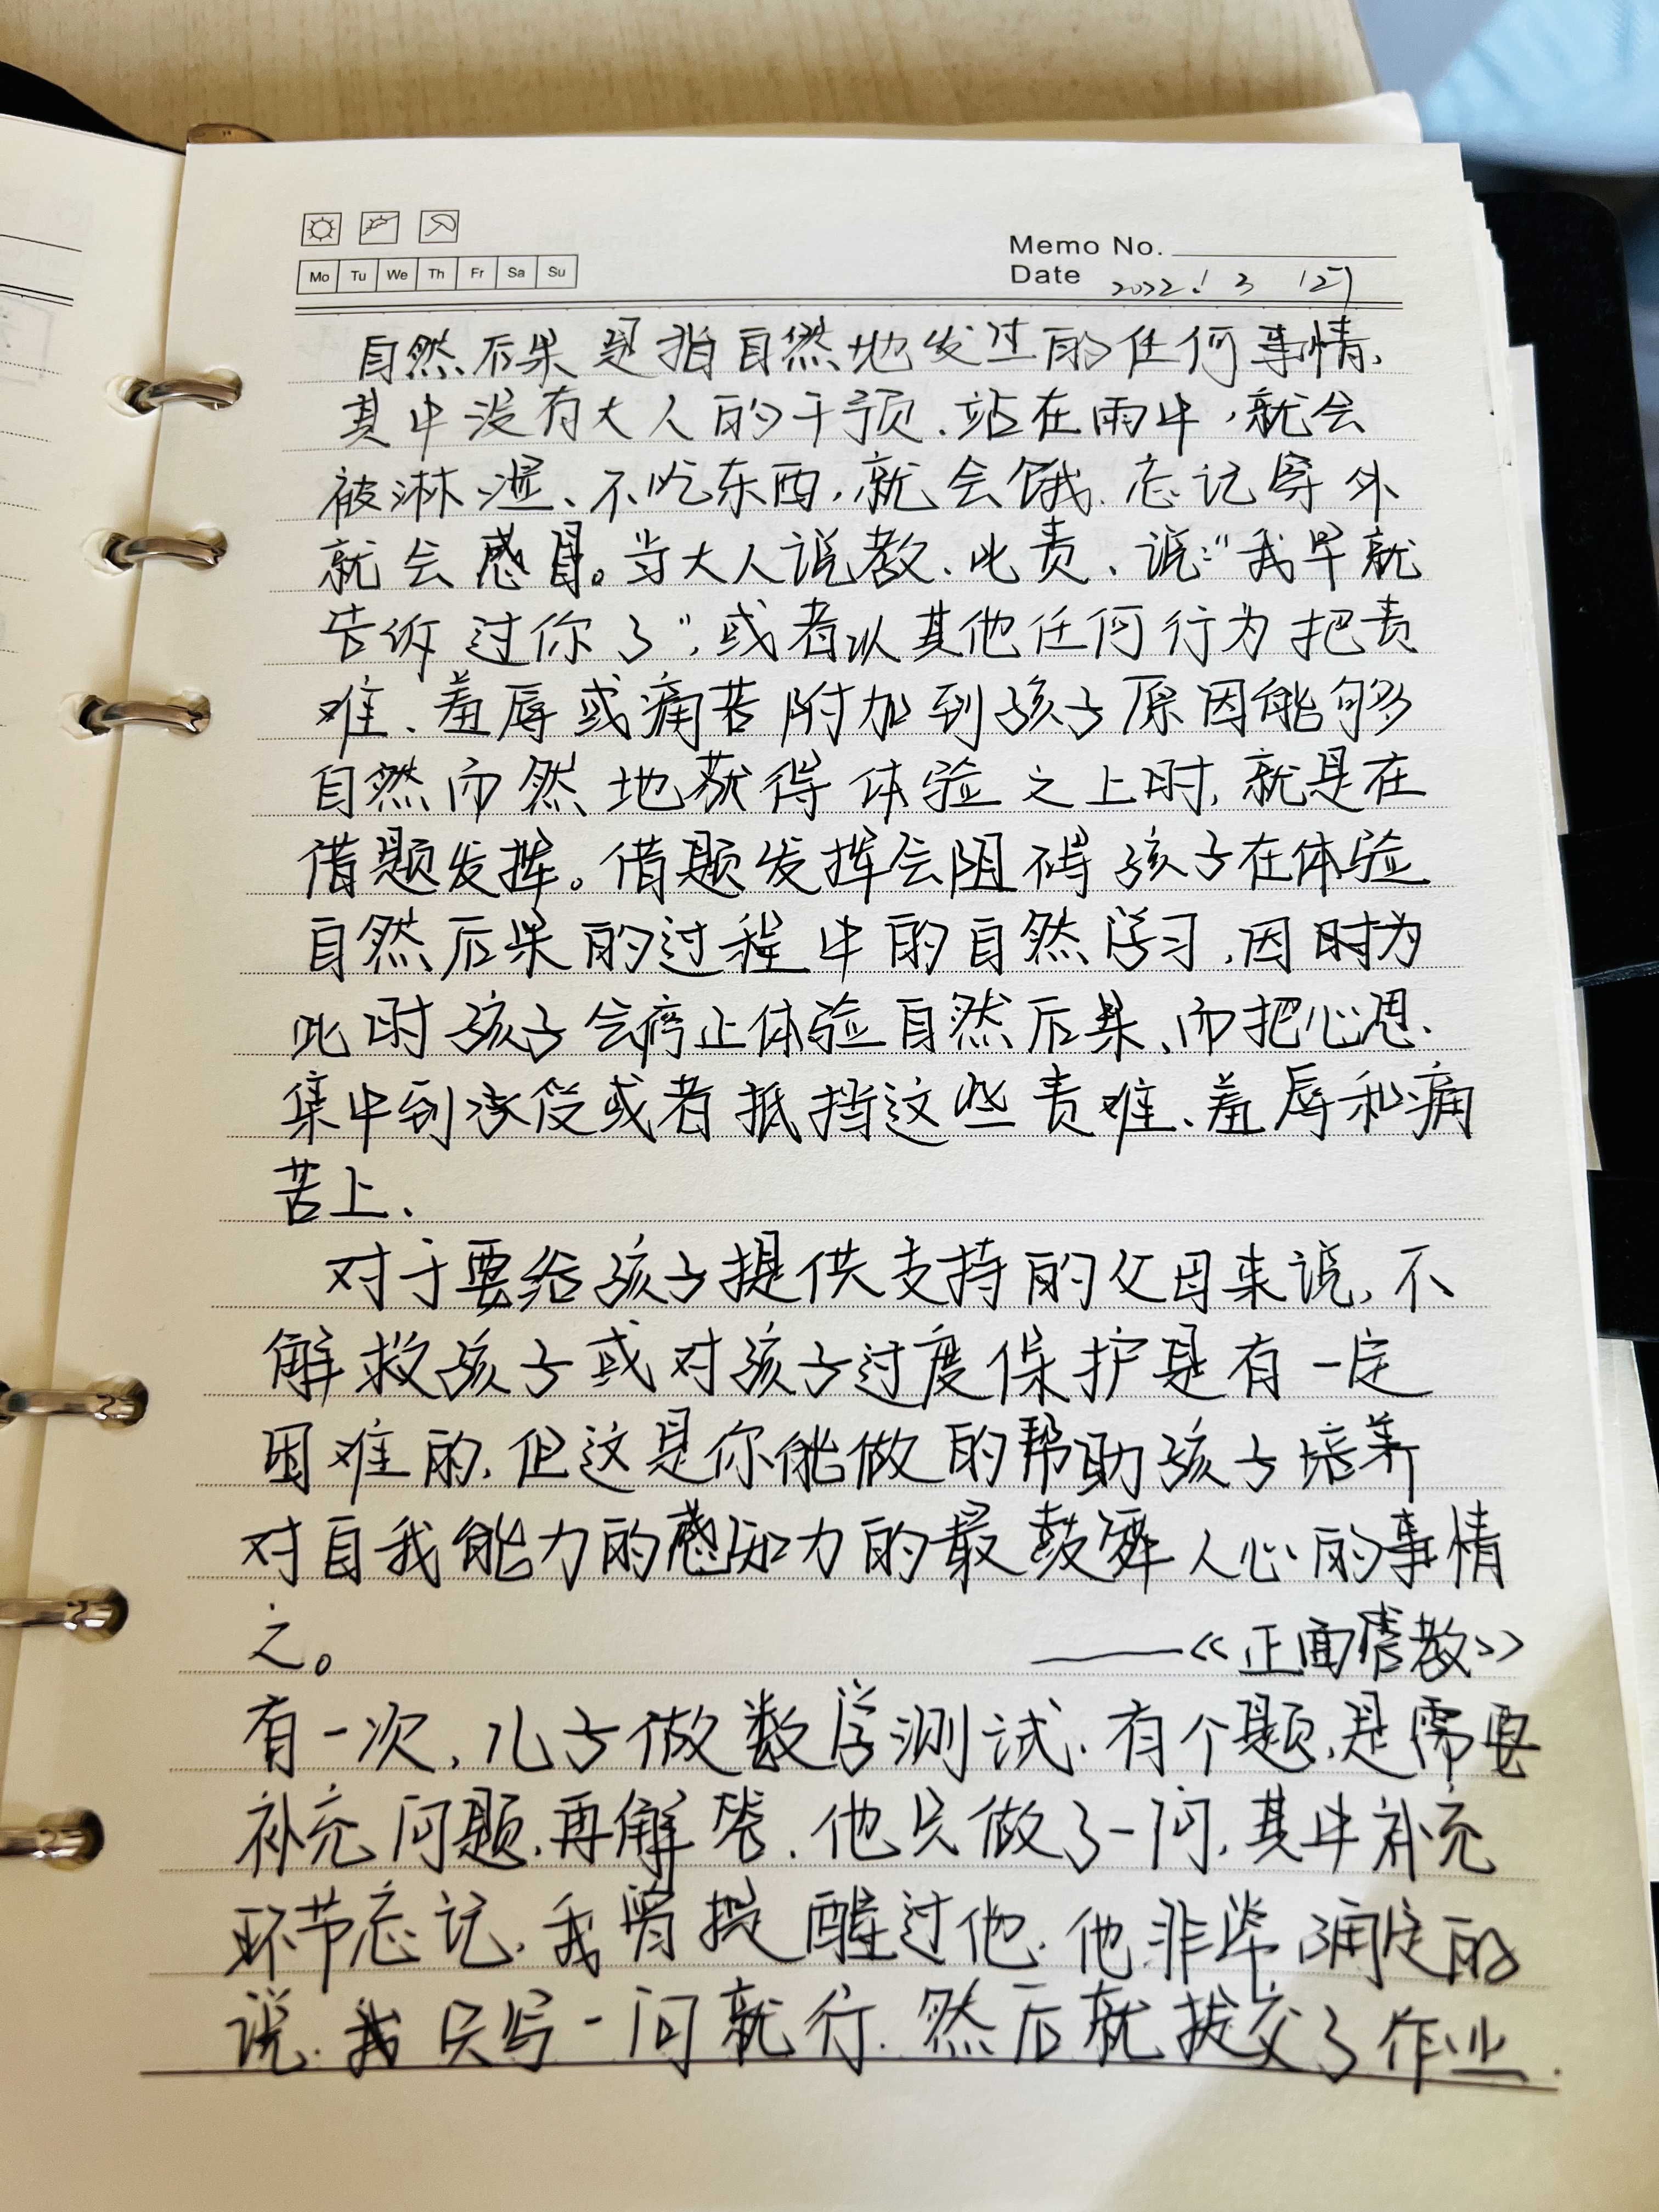 Memo No.
Mo Tu We Th Fr Sa Su
Date 2022.1.3
自然后果是指自然地发过的任何事情,
其中没有大人的干预.站在雨中,就会
被淋湿、不吃东西,就会饿.忘记穿外
就会感冒。当大人说教、此责、说:"我早就
告诉过你了",或者以其他任何行为把责
难、羞辱或痛苦附加到孩子原因能够
自然而然地获得体验之上时,就是在
借题发挥。借题发挥会阻碍孩子在体验
自然后果的过程中的自然学习,因时为
此时孩子会停止体验自然后果、而把心思.
集中到承受或者抵挡这些责难、羞辱和痛
苦上.
对于要给孩子提供支持的父母来说,不
解救孩子或对孩子过度保护是有一定
困难的,但这是你能做的帮助孩子培养
对自我能力的感知力的最鼓舞人心的事情
之。 ——《正面管教》
有一次,儿子做数学测试.有个题,是需要
补充问题,再解答.他只做了一问,其中补充
环节忘记.我曾提醒过他.他非常确定的
说.我只写一问就行.然后就提交了作业.